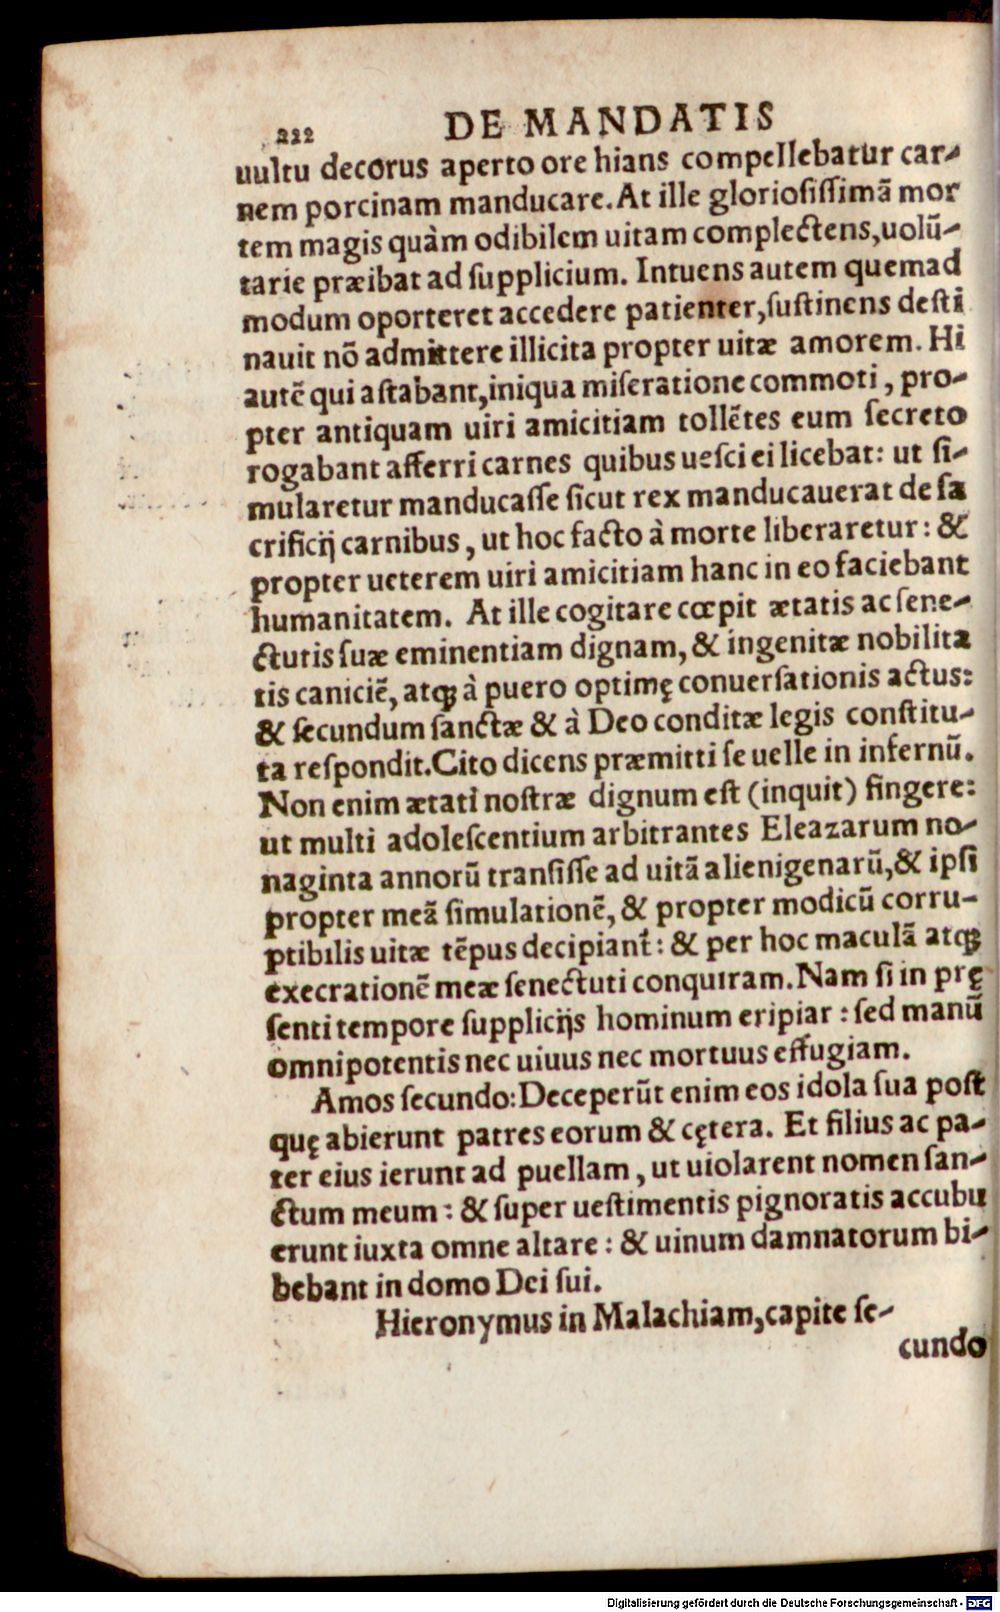 232 DE MANDATIS
uultu decorus aperto ore hians compellebatur car-
nem porcinam manducare. At ille gloriosissimã mor
tem magis quàm odibilem uitam complectens, uolũ-
tarie præibat ad supplicium. Intuens autem quemad
modum oporteret accedere patienter, sustinens desti
nauit nõ admittere illicita propter uitæ amorem. Hi
autẽ qui astabant, iniqua miseratione commoti, pro-
pter antiquam uiri amicitiam tollẽtes eum secreto
rogabant afferri carnes quibus uesci ei licebat: ut si-
mularetur manducasse sicut rex manducauerat de sa
crificij carnibus, ut hoc facto à morte liberaretur: &
propter ueterem uiri amicitiam hanc in eo faciebant
humanitatem. At ille cogitare cœpit ætatis ac sene-
ctutis suæ eminentiam dignam, & ingenitæ nobilita
tis caniciẽ, atqꝫ à puero optimę conuersationis actus:
& secundum sanctæ & à Deo conditæ legis constitu-
ta respondit. Cito dicens præmitti se uelle in infernũ.
Non enim ætati nostræ dignum est (inquit) fingere:
ut multi adolescentium arbitrantes Eleazarum no-
naginta annorũ transisse ad uitã alienigenarũ, & ipsi
propter meã simulationẽ, & propter modicũ corru-
ptibilis uitæ tẽpus decipiant: & per hoc maculã atqꝫ
execrationẽ meæ senectuti conquiram. Nam si in prę
senti tempore supplicijs hominum eripiar: sed manũ
omnipotentis nec uiuus nec mortuus effugiam.
Amos secundo: Deceperũt enim eos idola sua post
quę abierunt patres eorum & cętera. Et filius ac pa-
ter eius ierunt ad puellam, ut uiolarent nomen san-
ctum meum: & super uestimentis pignoratis accubu
erunt iuxta omne altare: & uinum damnatorum bi-
bebant in domo Dei sui.
Hieronymus in Malachiam, capite se-
cundo
Digitalisierung gefördert durch die Deutsche Forschungsgemeinschaft - DFG